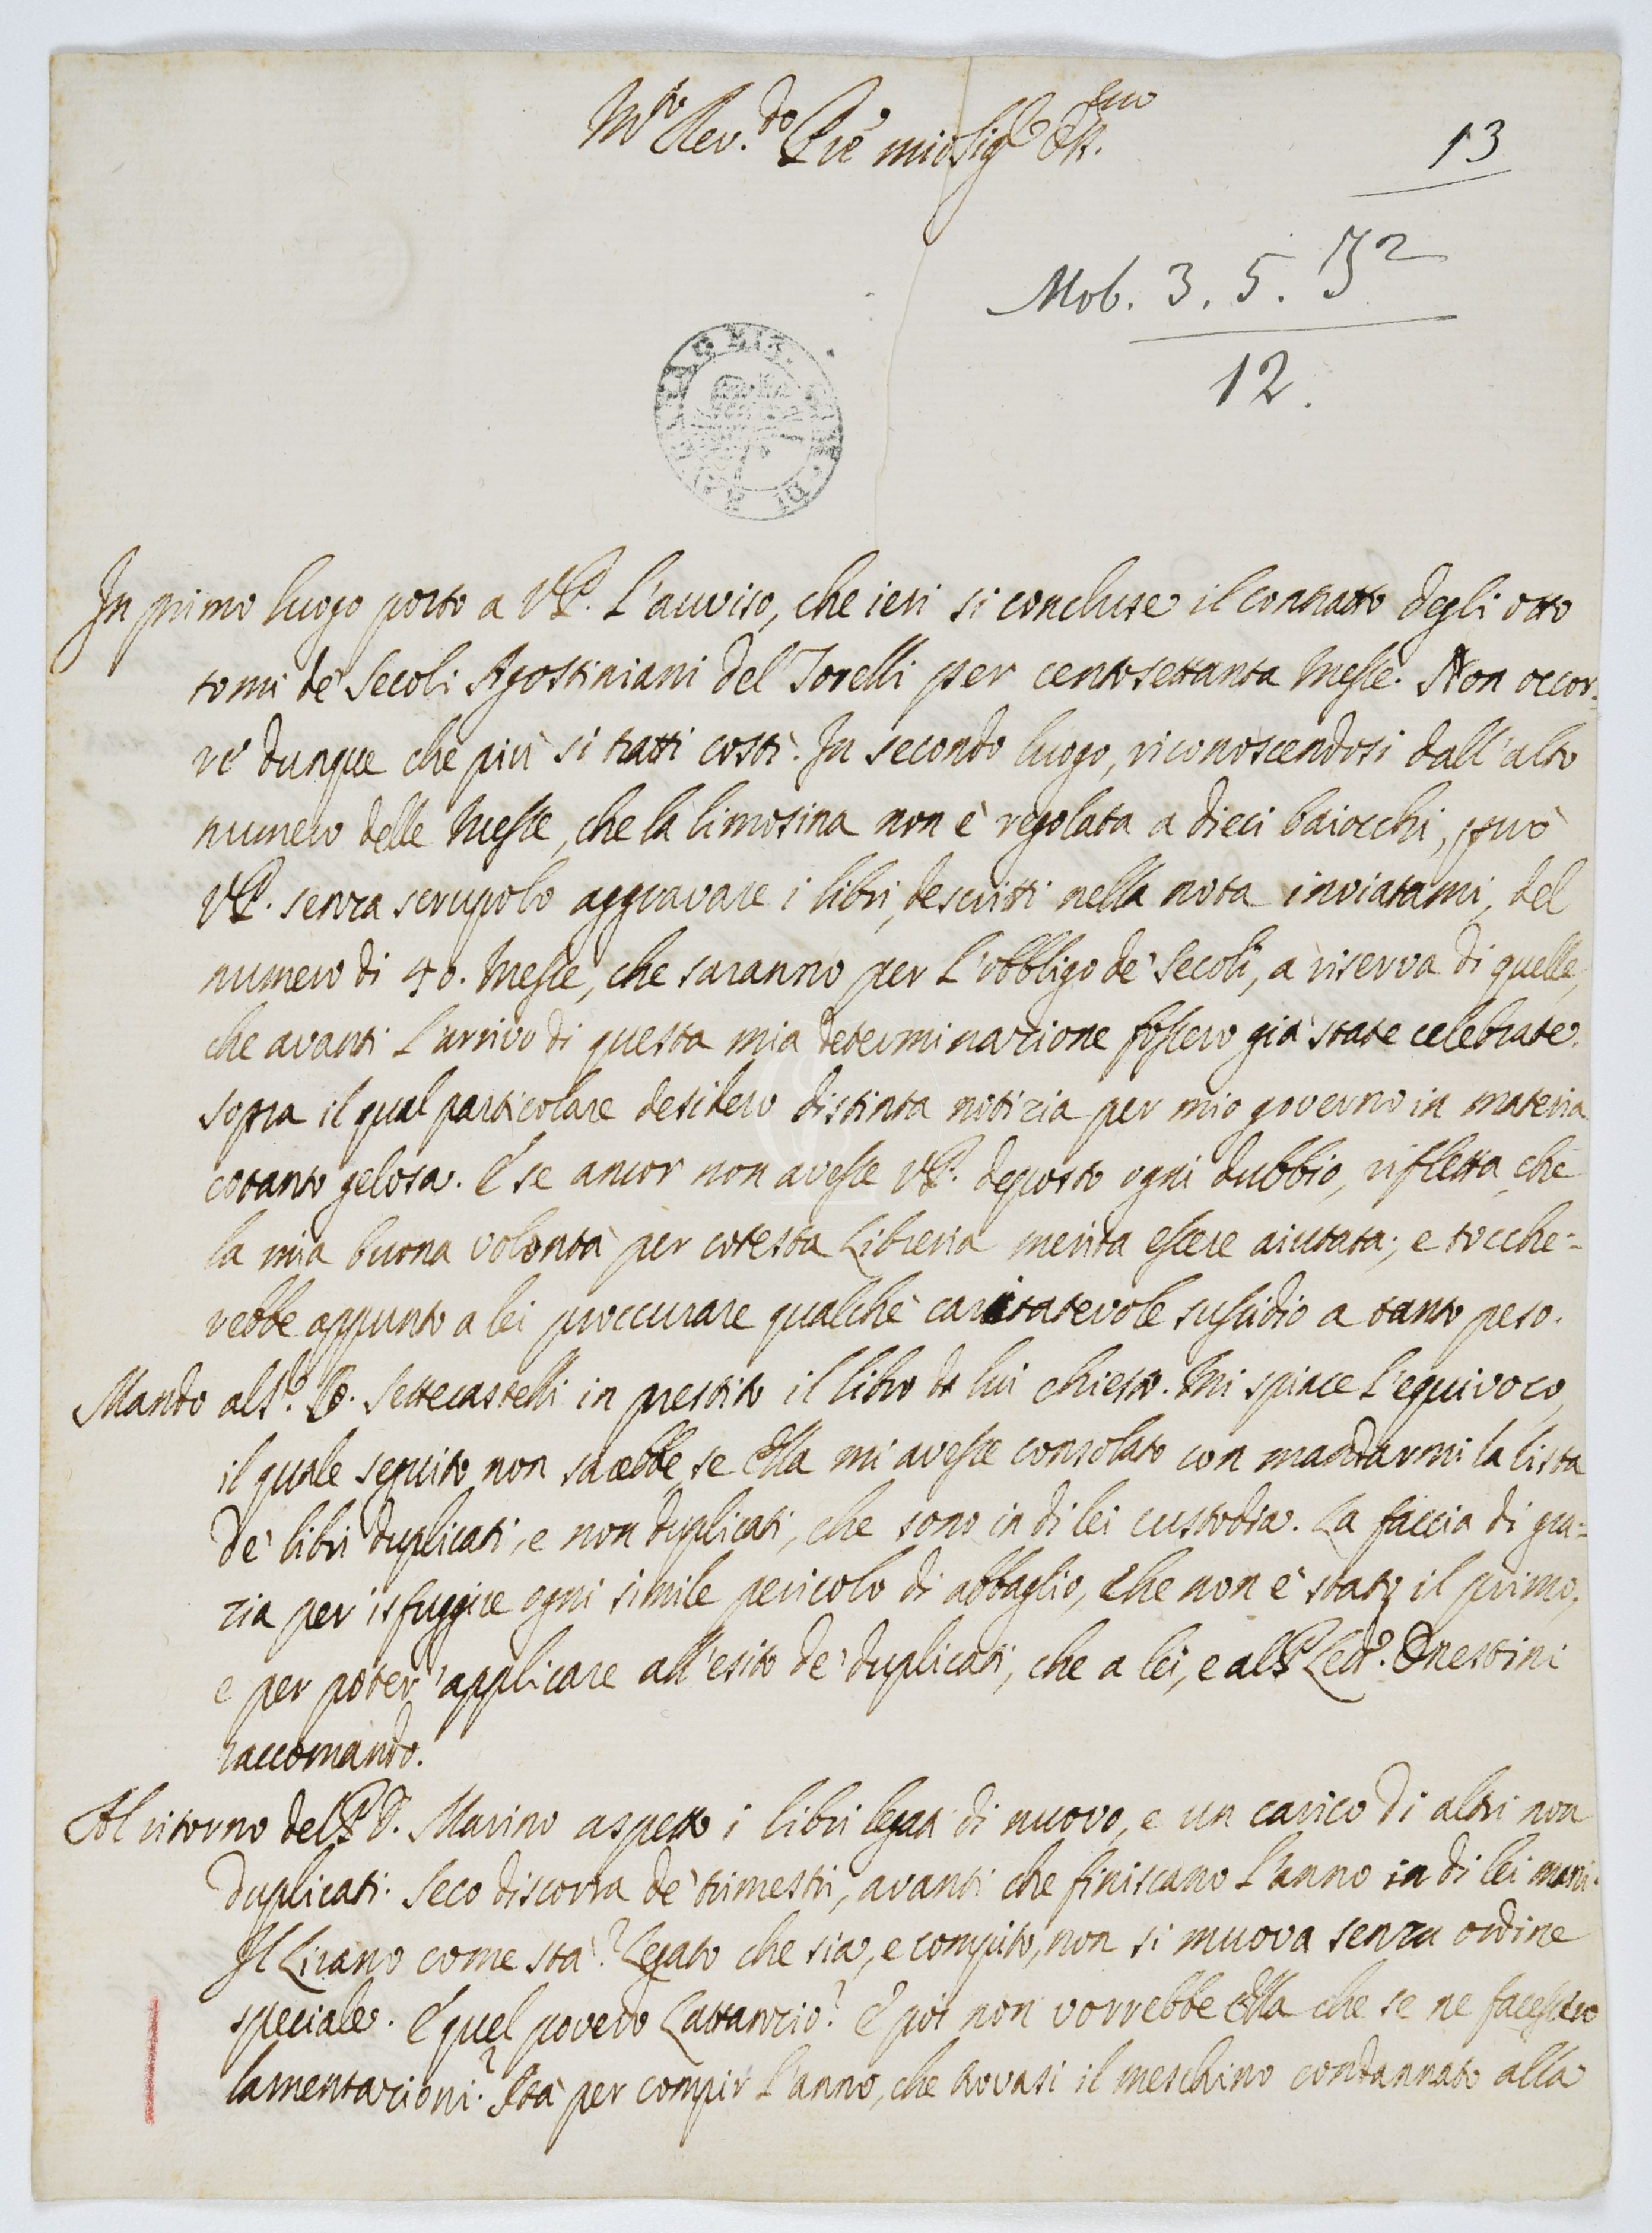 M.to Rev.do P.re mio Sig.re Oss.mo
13
Mob. 3. 5. J2
12.
In primo luogo porto a V.P. l'avviso, che ieri si concluse il contratto degli otto
tomi de' Secoli Agostiniani del Torelli per centosettanta Messe. Non occor-
re dunque che più si tratti costì. In secondo luogo, riconoscendosi dall'alto
numero delle Messe, che la limosina non è regolata a dieci baiocchi, può
V.P. senza scrupolo aggravare i libri, descritti nella nota inviatami, del
numero di 40. Messe, che saranno per l'obbligo de' Secoli, a riserva di quelle,
che avanti l'arrivo di questa mia determinazione fossero già state celebrate.
sopra il qual particolare desidero distinta notizia per mio governo in materia
cotanto gelosa. E se ancor non avesse V.P. deposto ogni dubbio, rifletta, che
la mia buona volontà per cotesta Libreria merita essere aiutata; e tocche-
rebbe appunto a lei proccurare qualche caritatevole sussidio a tanto peso.
Mando al P. Settecastelli in prestito il libro da lui chiesto. Mi spiace l'equivoco,
il quale seguito non sarebbe, se Ella mi avesse consolato con mandarmi la lista
de' libri duplicati, e non duplicati, che sono in di lei custodia. La faccia di gra-
zia per isfuggire ogni simile pericolo di abbaglio, che non è stato il primo,
e per poter' applicare all'esito de' duplicati, che a lei, e al P. Lett.e Onestini
raccomando.
Al ritorno del P. D. Marino aspetto i libri legati di nuovo, e un carico di altri non
duplicati. Seco discorra de' trimestri, avanti che finiscano l'anno in di lei mani.
Il Lirano come sta? Legato che sia, e compito, non si muova senza ordine
speciale. E quel povero Lattanzio? E poi non vorrebbe Ella che se ne facessero
lamentazioni? Sta per compir l'anno, che trovasi il meschino condannato alla